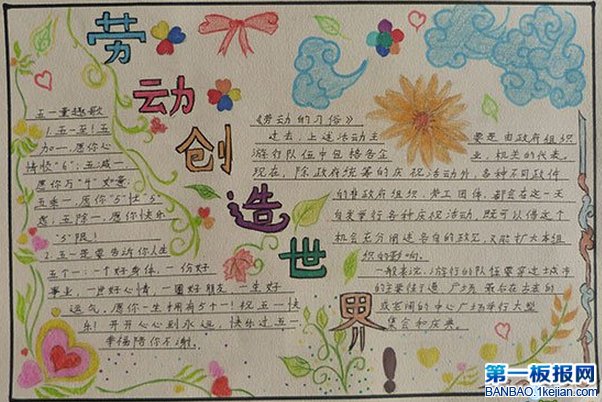 劳动创造世界!
五一童趣歌
1.五一至!五
加一,愿你心
情愉"6";五减一,
愿你万"4"如意;
五乘一,愿你"5"忧"5"
愁;五除一,愿你快乐
"5"限!
2.五一是要告诉你人生
五个一:一个好身体,一份好
事业,一片好心情,一圈好朋友,一生好
运气,愿你一生拥有5个一!祝五一快
乐!开开心心到永远,快乐过五一
幸福陪你不测.
《劳动的习俗》
过去,上述活动主要是由政府组织
游行队伍中包括各企业,机关的代表。
现在,除政府统筹的庆祝活动外,各种不同政件
的非政府组织,劳工团体,都会在这一天
自发举行各种庆祝活动,既可以借这个
机会充分阐述各自的政见,又能扩大本组
织的影响。
一般来说,游行的队伍要穿过城市
的主要住干道,广场,最后在古老的
或宽阔的中心广场举行大型
集会和庆典。
第一板报网
BANBAO.1kejian.com